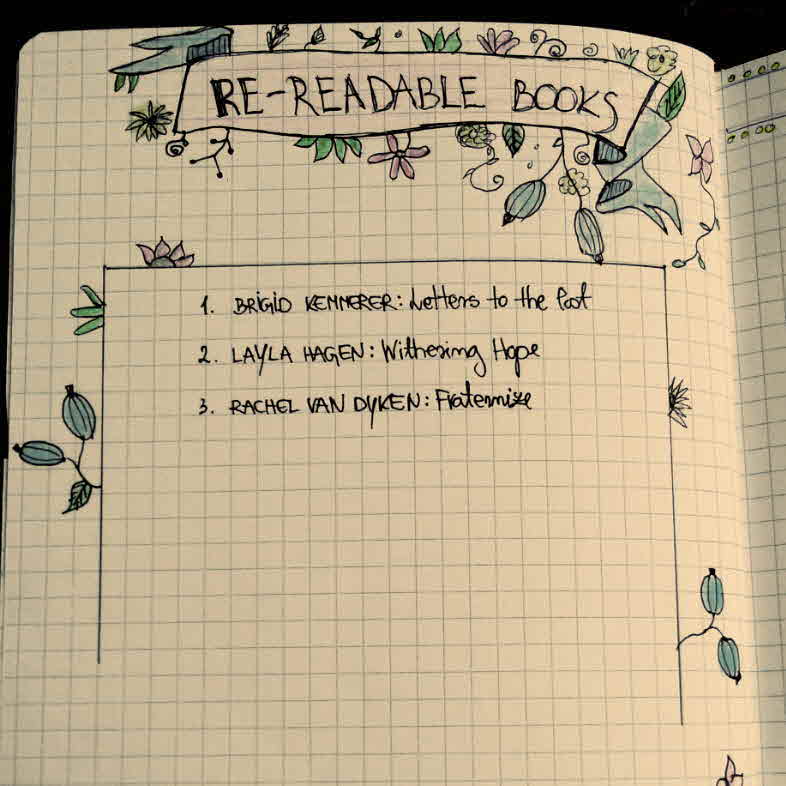 RE-READABLE BOOKS
1. BRIGID KEMMERER: Letters to the Lost
2. LAYLA HAGEN: Withering Hope
3. RACHEL VAN DYKEN: Fraternize